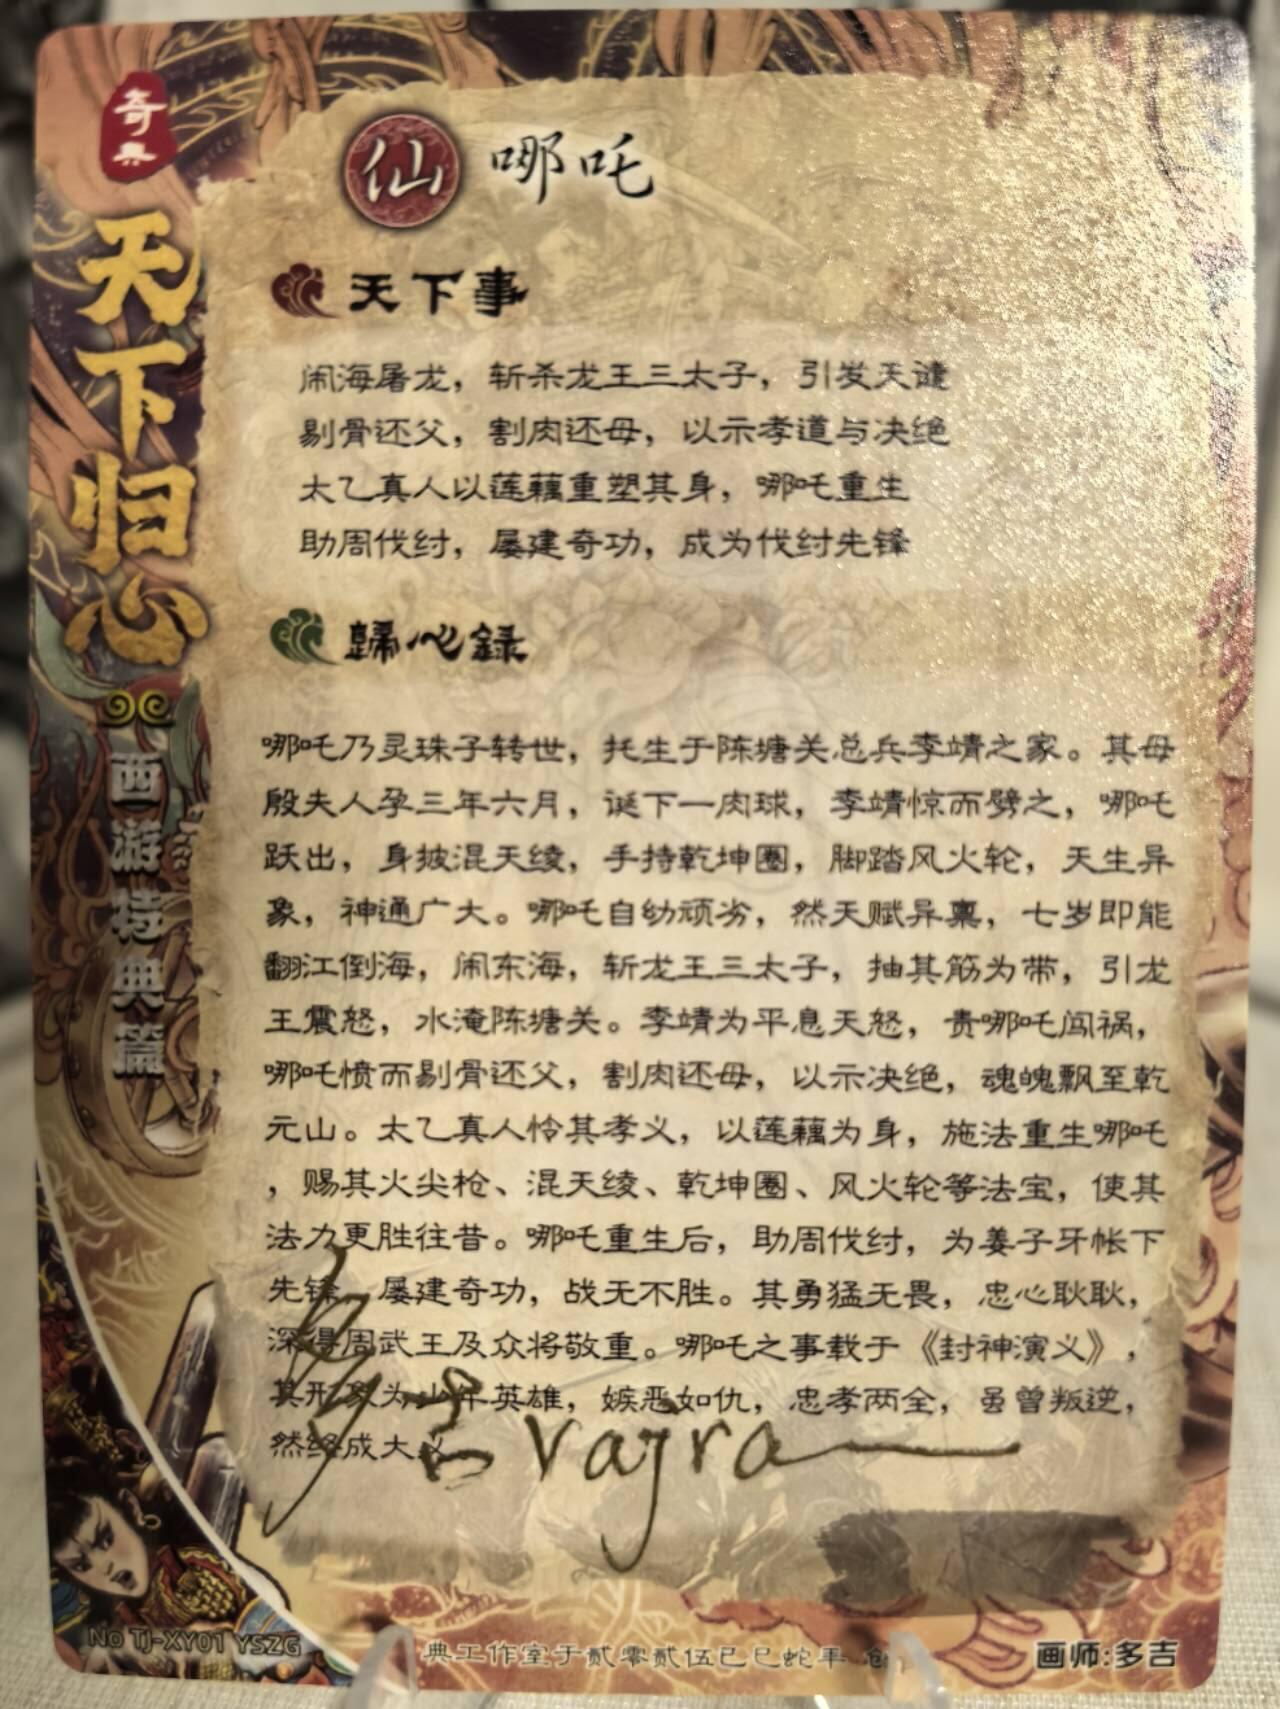 奇典
天下归心
西游特典篇
仙 哪吒
天下事
闹海屠龙，斩杀龙王三太子，引发天谴
剔骨还父，割肉还母，以示孝道与决绝
太乙真人以莲藕重塑其身，哪吒重生
助周伐纣，屡建奇功，成为伐纣先锋
歸心録
哪吒乃灵珠子转世，托生于陈塘关总兵李靖之家。其母
殷夫人孕三年六月，诞下一肉球，李靖惊而劈之，哪吒
跃出，身披混天绫，手持乾坤圈，脚踏风火轮，天生异
象，神通广大。哪吒自幼顽劣，然天赋异禀，七岁即能
翻江倒海，闹东海，斩龙王三太子，抽其筋为带，引龙
王震怒，水淹陈塘关。李靖为平息天怒，责哪吒闯祸，
哪吒愤而剔骨还父，割肉还母，以示决绝，魂魄飘至乾
元山。太乙真人怜其孝义，以莲藕为身，施法重生哪吒
，赐其火尖枪、混天绫、乾坤圈、风火轮等法宝，使其
法力更胜往昔。哪吒重生后，助周伐纣，为姜子牙帐下
先锋，屡建奇功，战无不胜。其勇猛无畏，忠心耿耿，
深得周武王及众将敬重。哪吒之事载于《封神演义》，
其形象为少年英雄，嫉恶如仇，忠孝两全，虽曾叛逆，
然终成大义
多吉 vajra
No TJ-XY01 YSZG
典工作室于贰零贰伍已巳蛇年
画师:多吉